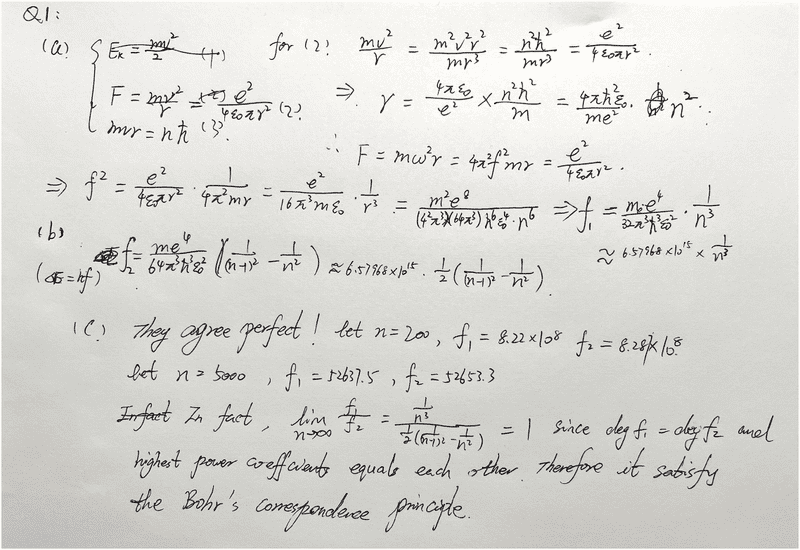 Q1:
(a) { E_k = mv²/2 (1) for (2): mv²/r = m²v²r²/mr³ = n²ħ²/mr³ = e²/4ε₀πr².
F = mv²/r = e²/4ε₀πr² (2) ⇒ r = 4πε₀/e² × n²ħ²/m = 4πħ²ε₀/me² · n².
mvr = nħ (3). ∴ F = mω²r = 4π²f²mr = e²/4ε₀πr².
⇒ f² = e²/4ε₀πr² · 1/4π²mr = e²/16π³mε₀ · 1/r³ = m²e⁸/(4²π³)(64π³)ħ⁶ε₀⁴·n⁶ ⇒ f₁ = m₀e⁴/32π³ħ³ε₀² · 1/n³
≈ 6.57968×10¹⁵ × 1/n³
(b)
f₂ = me⁴/64π³ħ³ε₀² (1/(n-1)² - 1/n²) ≈ 6.57968×10¹⁵ · 1/2(1/(n-1)² - 1/n²)
(E=hf)
(C) They agree perfect! let n=200, f₁ = 8.22×10⁸ f₂ = 8.28×10⁸.
let n = 5000, f₁ = 52637.5, f₂ = 52653.3
Infact In fact, lim n→∞ f₁/f₂ = 1/n³ / 1/2(1/(n-1)² - 1/n²) = 1 since deg f₁ = deg f₂ and
highest power coefficients equals each other. Therefore it satisfy
the Bohr's correspondence principle.